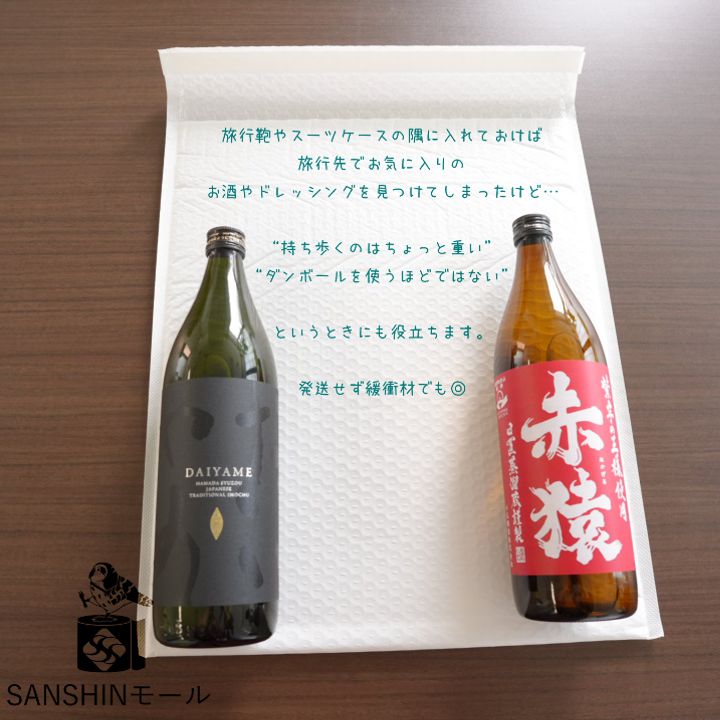 旅行鞄やスーツケースの隅に入れておけば
旅行先でお気に入りの
お酒やドレッシングを見つけてしまったけど…
“持ち歩くのはちょっと重い”
“ダンボールを使うほどではない”
というときにも役立ちます。
発送せず緩衝材でも◎
DAIYAME
HAMADA SYUZOU
JAPANESE
TRADITIONAL SHOCHU
紫芋の王様使用
赤猿
あかざる
SANSHINモール